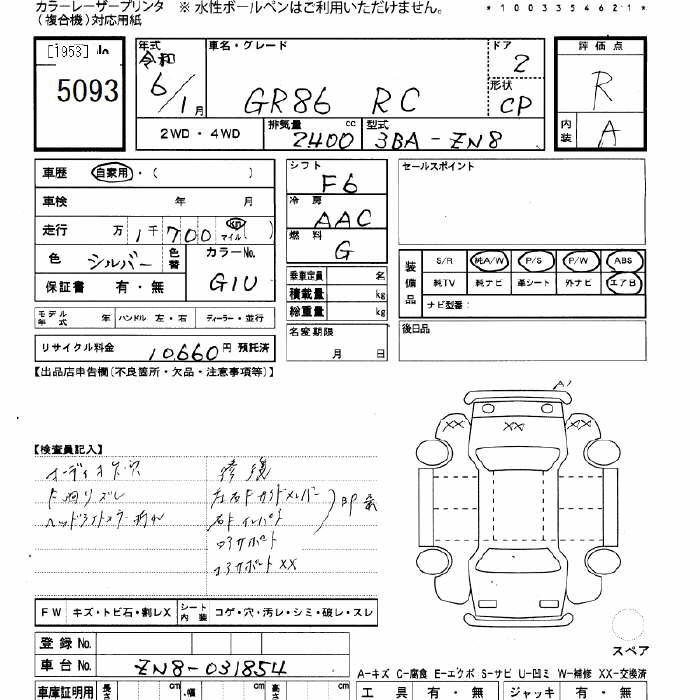 カラーレーザープリンタ ※ 水性ボールペンはご利用いただけません。
(複合機)対応用紙
*1003354621*
[1953]
5093
年式 令和 6/1月
車名・グレード GR86 RC
ドア 2
形状 CP
評価点 R
内装 A
2WD・4WD
排気量 2400 cc
型式 3BA-ZN8
車歴 自家用・( )
車検 年 月
走行 1万 1千 700 km マイル ( )
色 シルバー 色替
カラーNo. G1U
保証書 有・無
シフト F6
冷房 AAC
燃料 G
乗車定員 名
積載量 kg
総重量 kg
名変期限 月 日
セールスポイント
装備品 S/R 純A/W P/S P/W ABS
純TV 純ナビ 革シート 外ナビ エアB
ナビ型番:
後日品
モデル年式 年 ハンドル 左・右 ディーラー・並行
リサイクル料金 10,660円 預託済
【出品店申告欄(不良箇所・欠品・注意事項等)】
【検査員記入】
修復
ヘッドライトカラー
コアサポート
コアサポート XX
A1
XX XX XX
FW キズ・トビ石・割レX シート内装 コゲ・穴・汚レ・シミ・破レ・スレ
スペア
登録 No.
車台 No. ZN8-031854
A-キズ C-腐食 E-エクボ S-サビ U-凹ミ W-補修 XX-交換済
車庫証明用 長さ cm 幅 cm 高さ cm
工具 有・無 ジャッキ 有・無